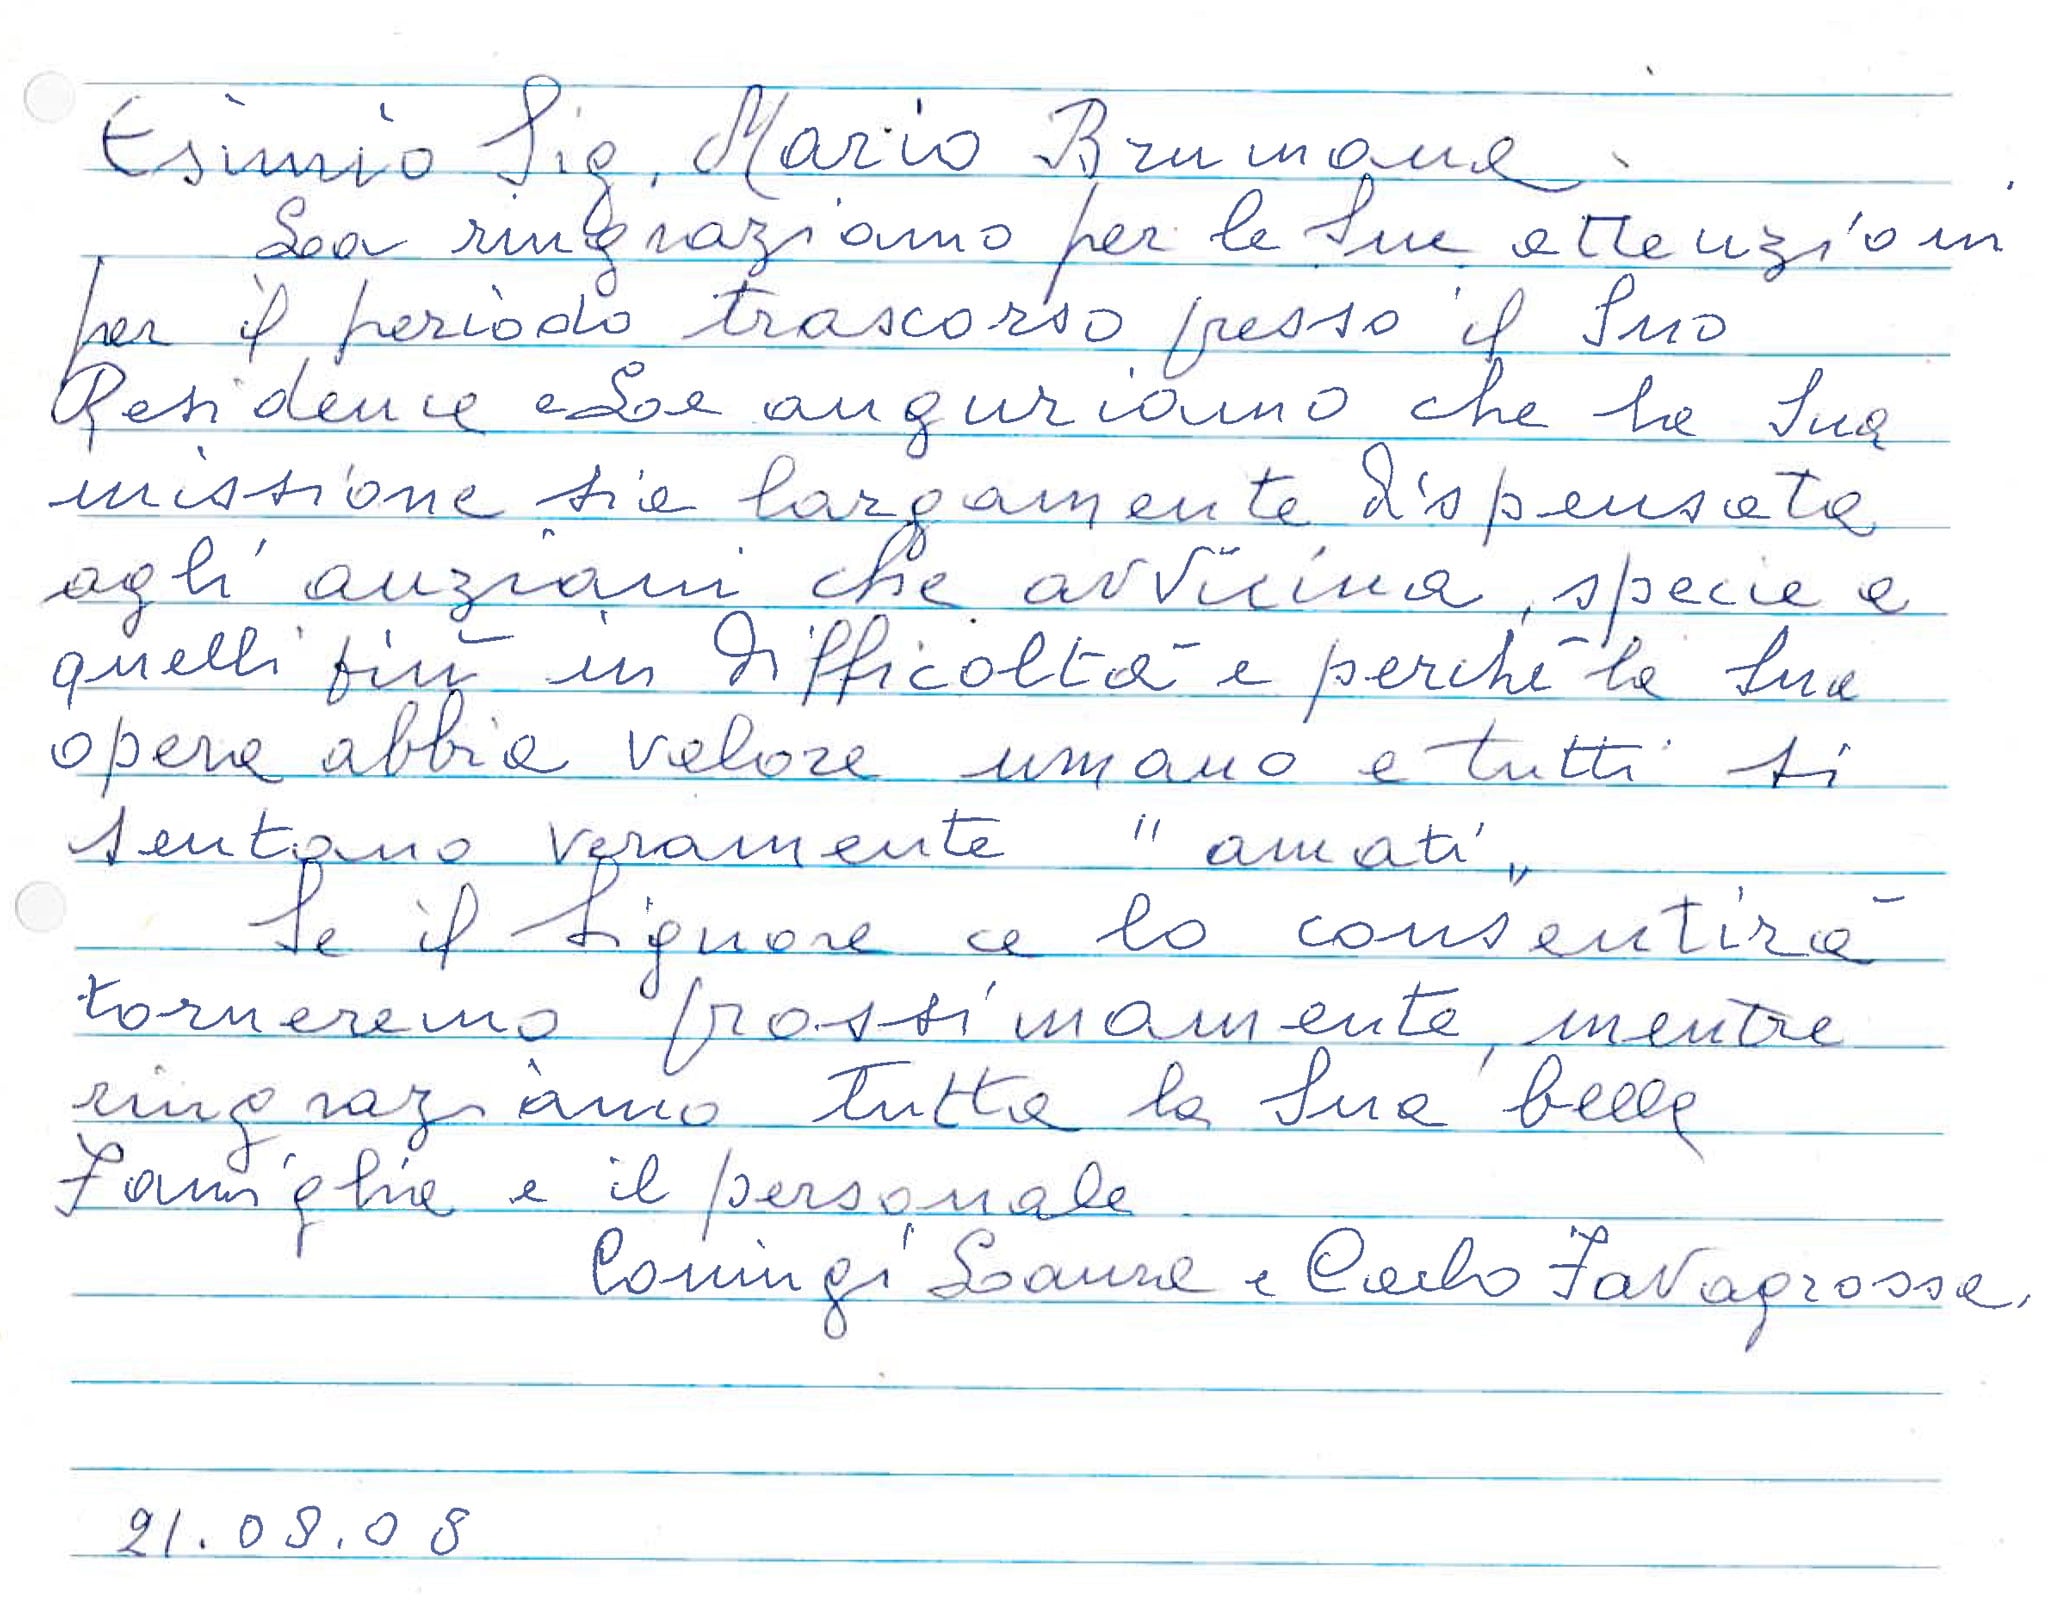 Esimio Sig. Mario Brumana
La ringraziamo per le Sue attenzioni
per il periodo trascorso presso il Suo
Residence e Le auguriamo che la Sua
missione sia largamente dispensata
agli anziani che avvicina, specie a
quelli più in difficoltà e perché la Sua
opera abbia valore umano e tutti si
sentano veramente "amati"
Se il Signore ce lo consentirà
torneremo prossimamente, mentre
ringraziamo tutta la Sua bella
Famiglia e il personale
Coningi Laura e Carlo Favagrossa.
21.08.08